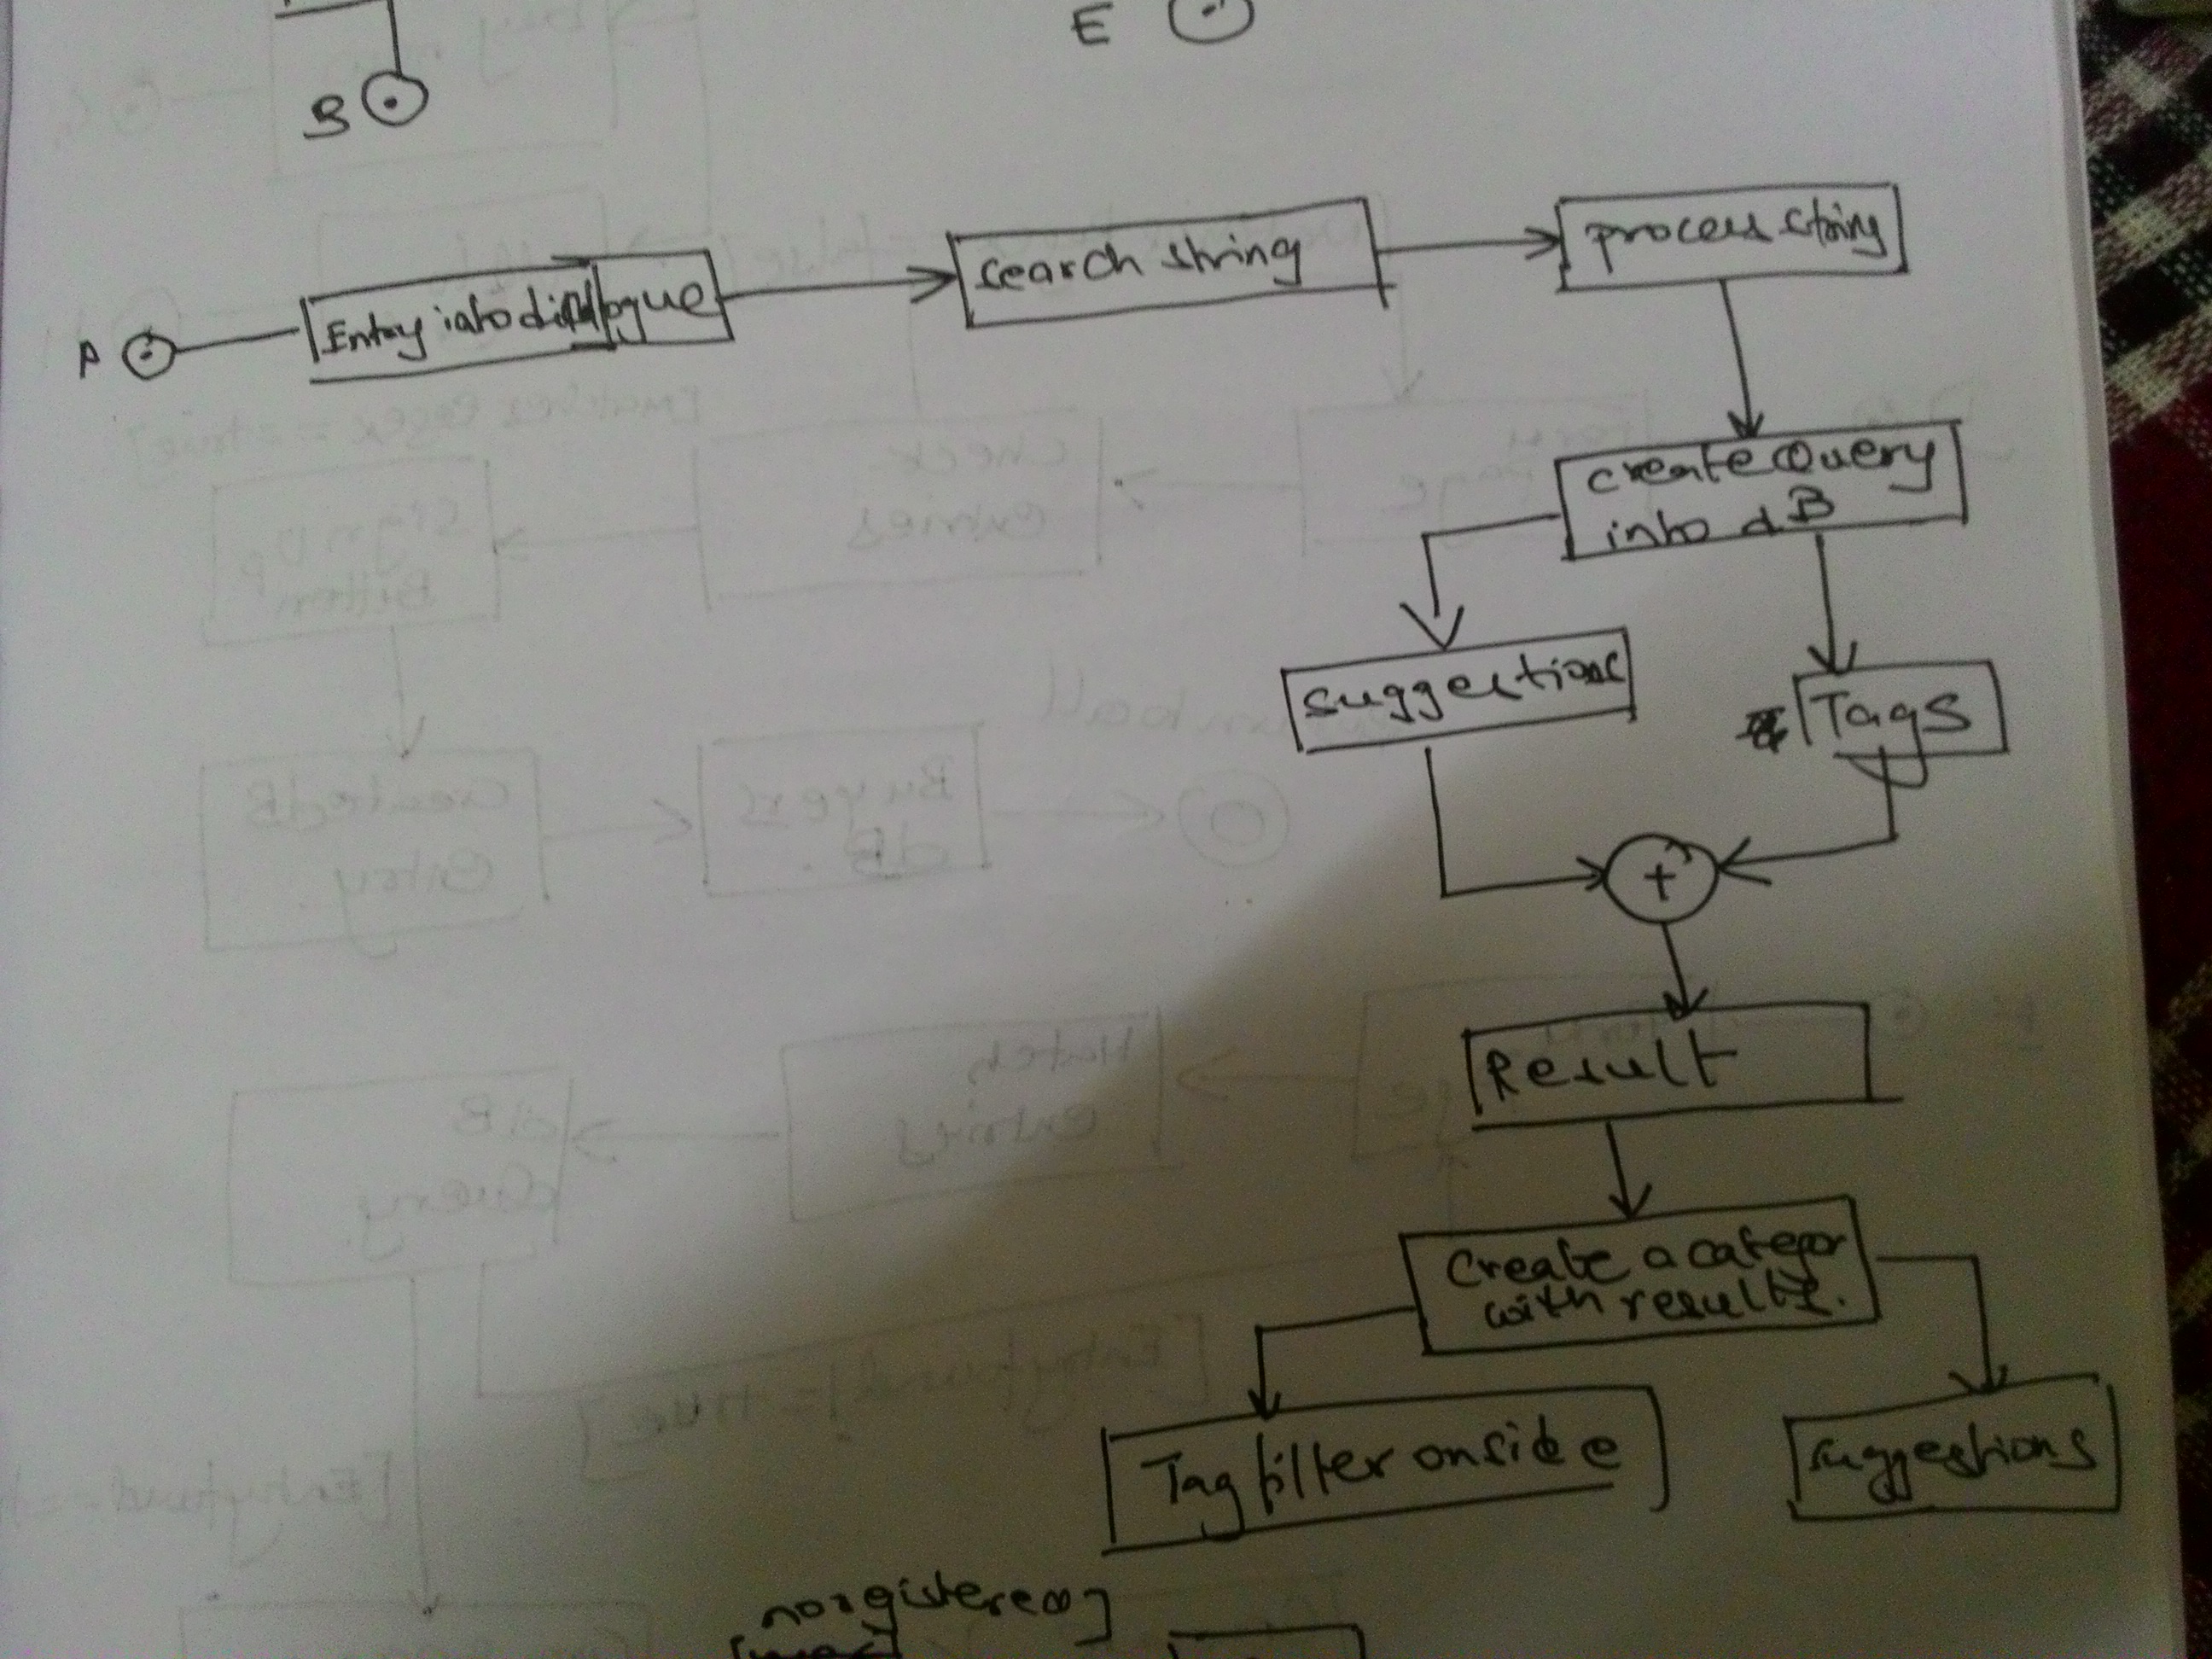 B
E
A
Entry into dialogue
search string
process string
create Query
into dB
suggestions
Tags
+
Result
Create a categor
with results.
Tag filter on side
suggestions
norgistered]